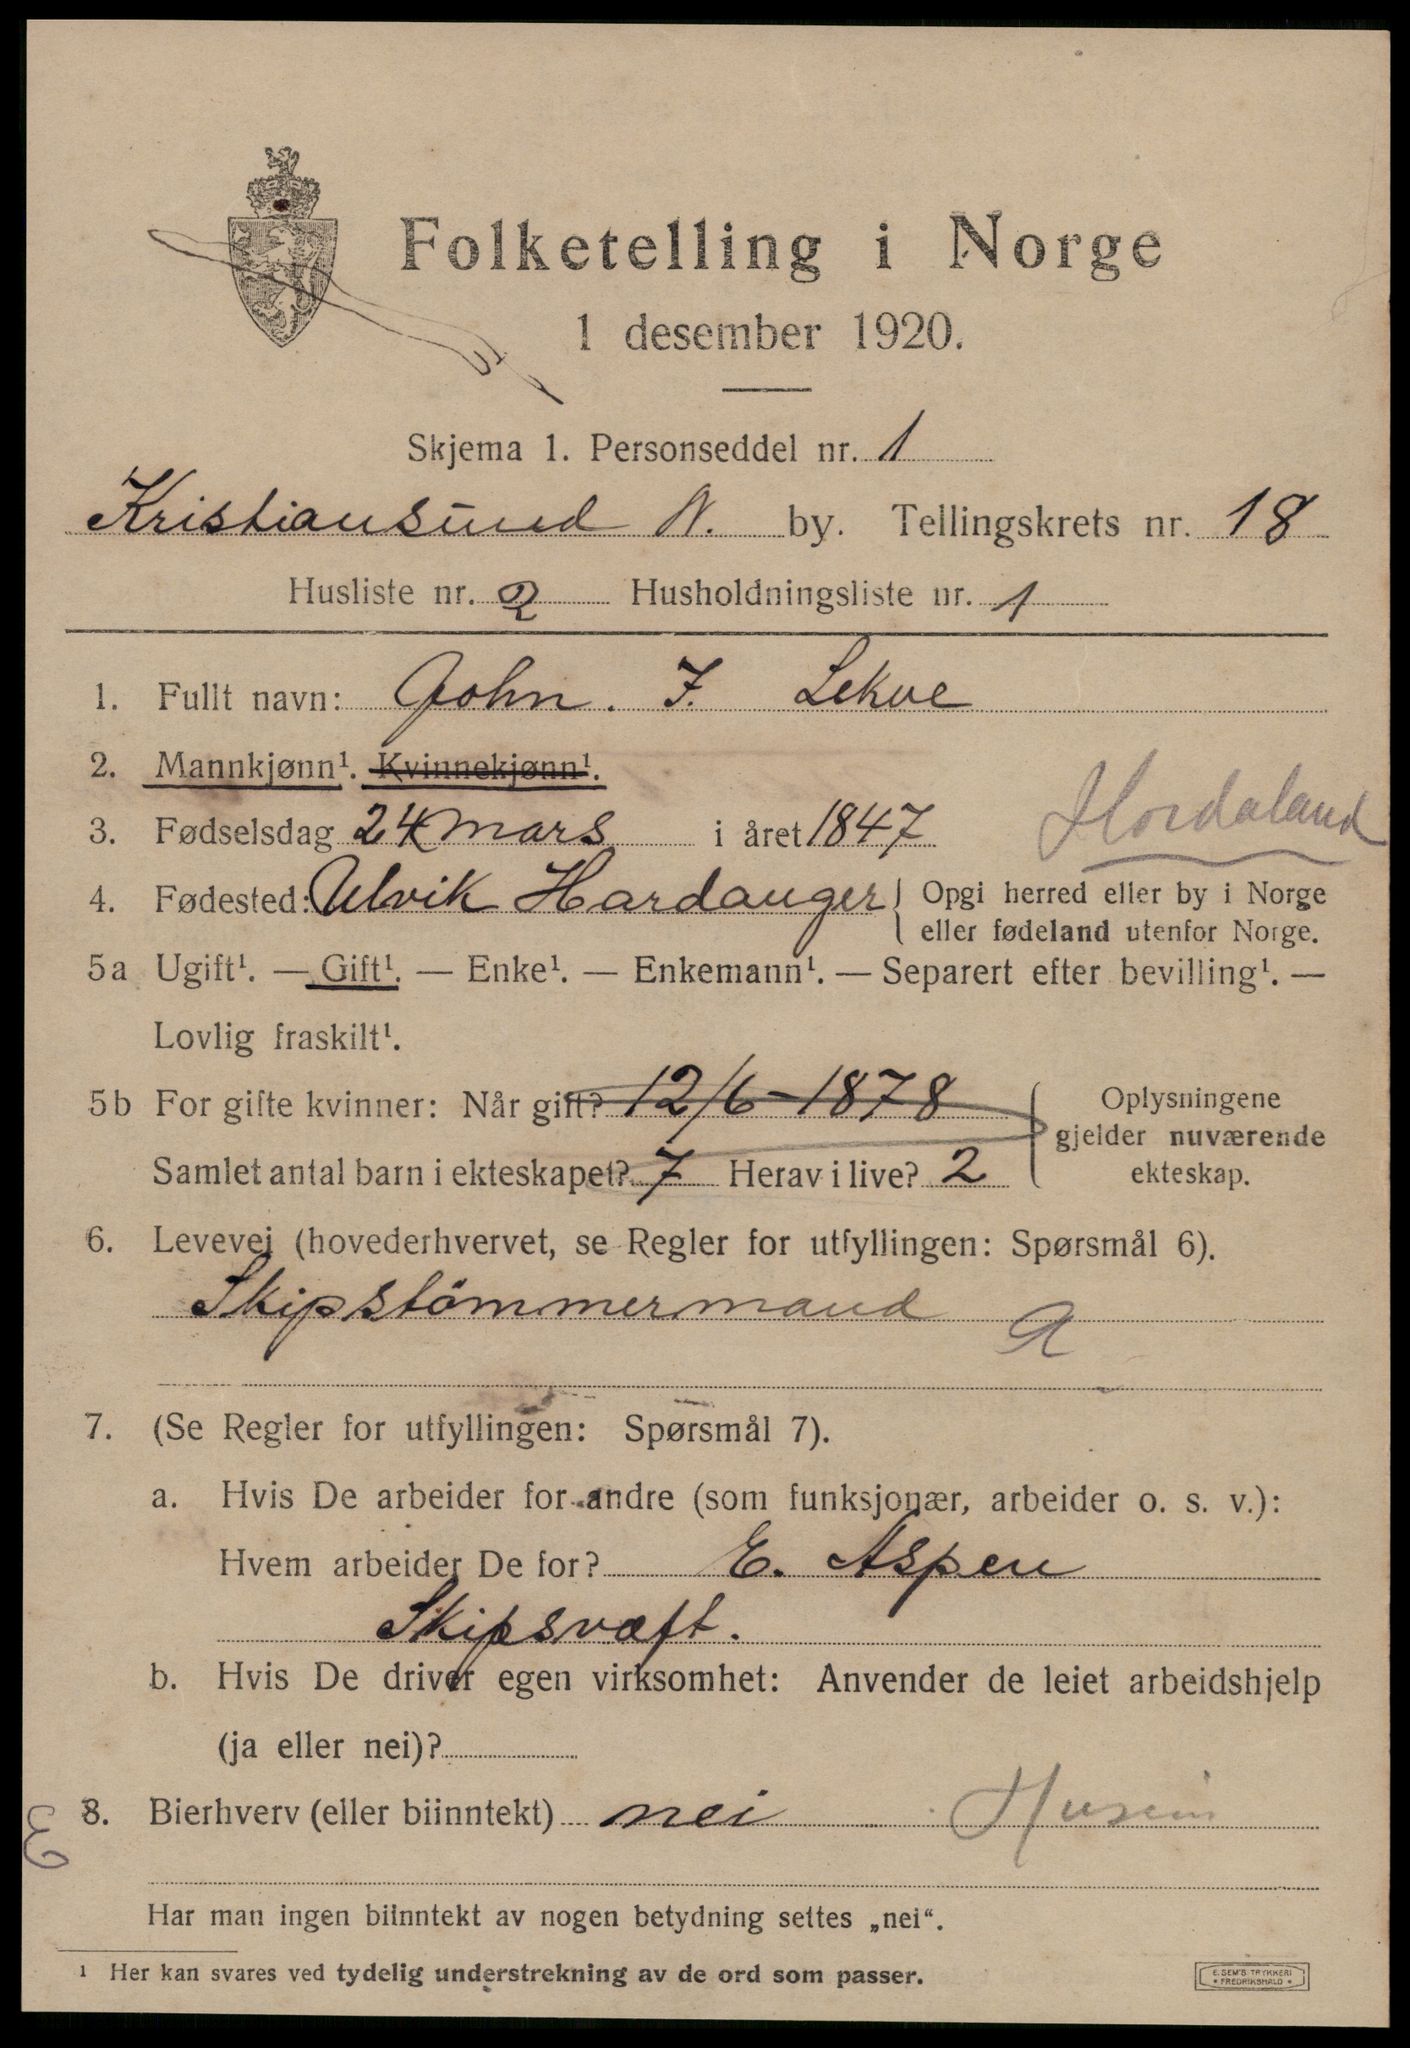 Folketelling i Norge
1 desember 1920.
Skjema 1. Personseddel nr. 1
Kristiansund N. by. Tellingskrets nr. 18
Husliste nr. 2 Husholdningsliste nr. 1
1. Fullt navn: John. J. Lekve
2. Mannkjønn¹. Kvinnekjønn¹.
Hordaland
3. Fødselsdag 24 mars i året 1847
4. Fødested: Ulvik Hardanger { Opgi herred eller by i Norge
eller fødeland utenfor Norge.
5a Ugift¹. — Gift¹. — Enke¹. — Enkemann¹. — Separert efter bevilling¹. —
Lovlig fraskilt¹.
5b For gifte kvinner: Når gift? 12/6-1878
Samlet antal barn i ekteskapet? 7 Herav i live? 2
{ Oplysningene
gjelder nuværende
ekteskap.
6. Levevei (hovederhvervet, se Regler for utfyllingen: Spørsmål 6).
Skipstömmermand a
7. (Se Regler for utfyllingen: Spørsmål 7).
a. Hvis De arbeider for andre (som funksjonær, arbeider o. s. v.):
Hvem arbeider De for? E. Aspen
Skipsvæft.
b. Hvis De driver egen virksomhet: Anvender de leiet arbeidshjelp
(ja eller nei)?
8. Bierhverv (eller biinntekt) nei
Har man ingen biinntekt av nogen betydning settes „nei“.
¹ Her kan svares ved tydelig understrekning av de ord som passer.
E. SEM'S TRYKKERI
* FREDRIKSHALD *